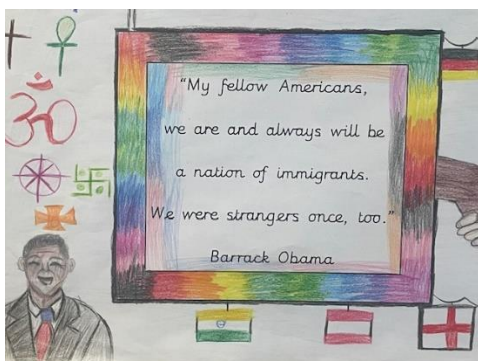 "My fellow Americans,
we are and always will be
a nation of immigrants.
We were strangers once, too."
Barrack Obama